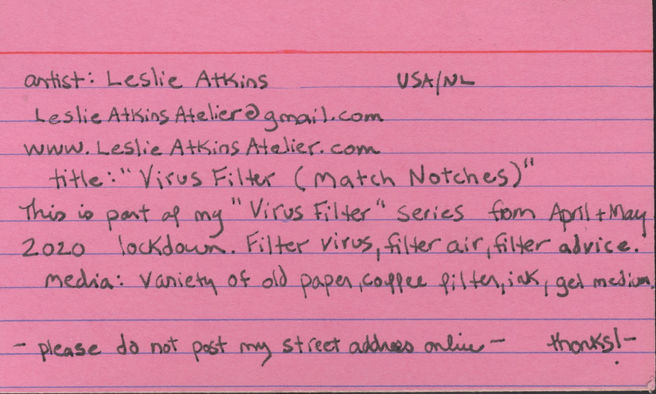 artist: Leslie Atkins USA/NL
LeslieAtkinsAtelier@gmail.com
www.LeslieAtkinsAtelier.com
title: "Virus Filter (Match Notches)"
This is part of my "Virus Filter" series from April + May
2020 lockdown. Filter virus, filter air, filter advice.
media: Variety of old paper, coffee filter, ink, gel medium.
- please do not post my street address online - thanks! -